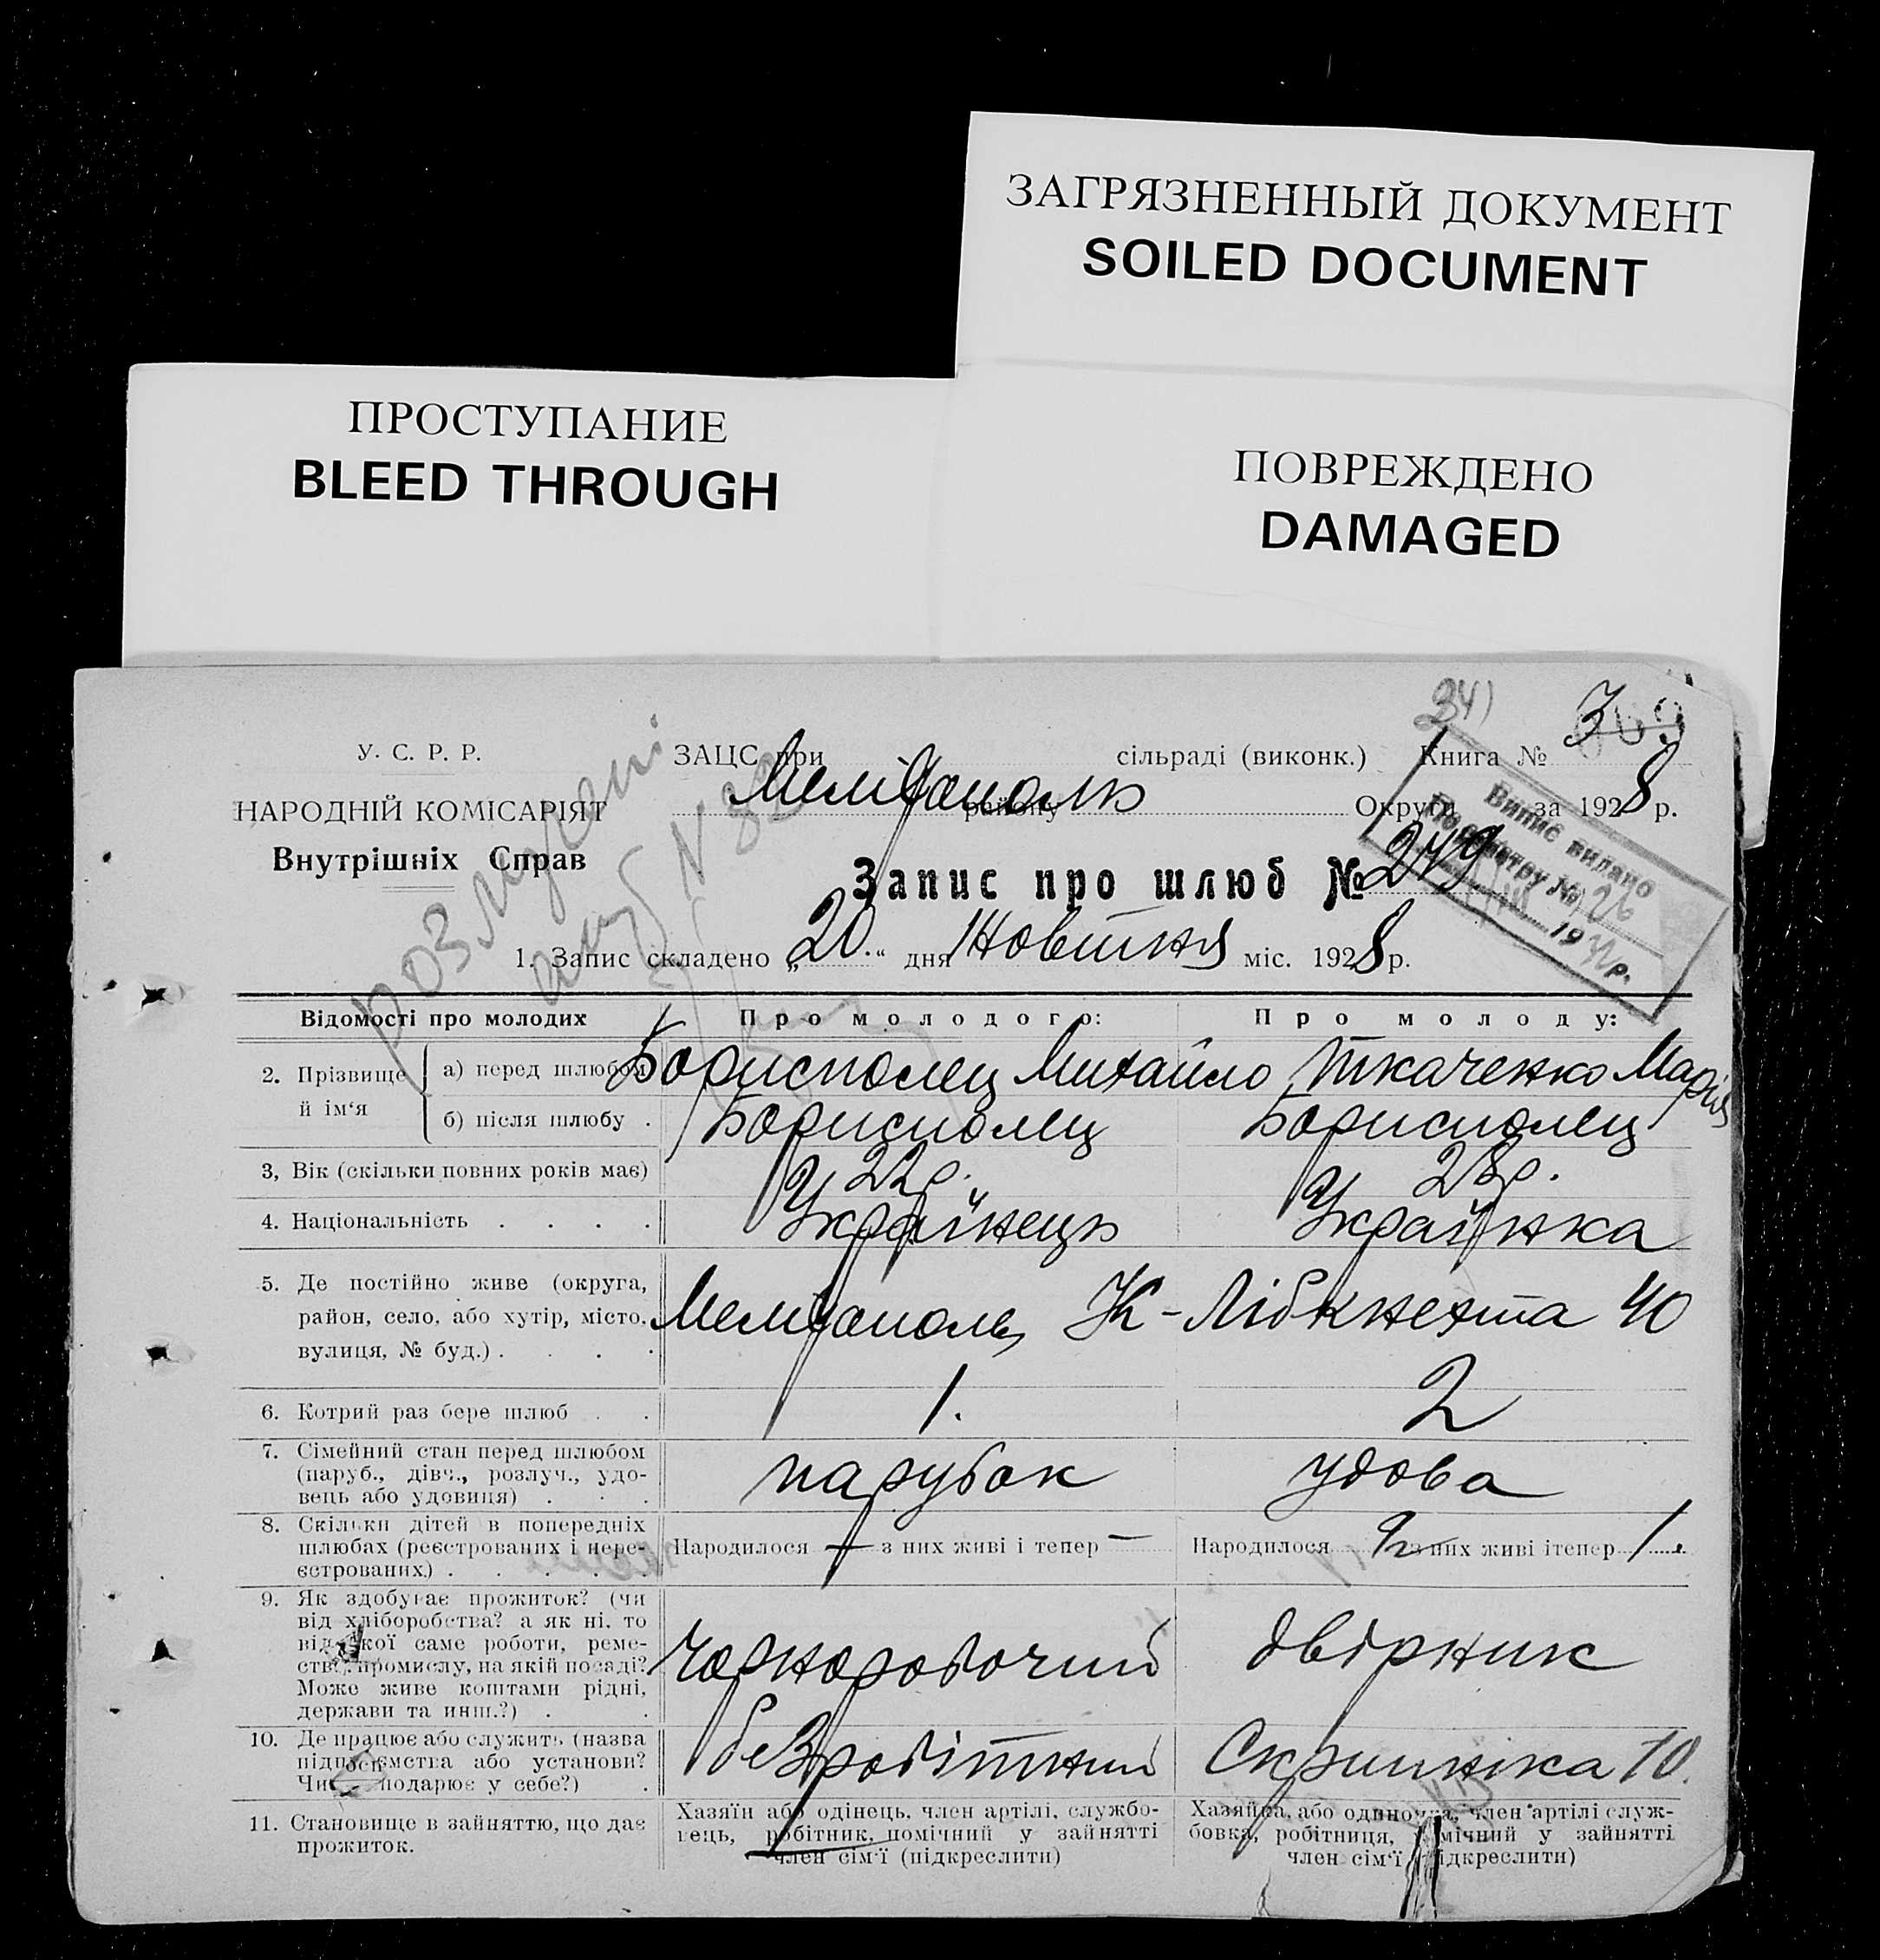 ЗАГРЯЗНЕННЫЙ ДОКУМЕНТ
SOILED DOCUMENT
ПРОСТУПАНИЕ
BLEED THROUGH
ПОВРЕЖДЕНО
DAMAGED
У. С. Р. Р.
НАРОДНІЙ КОМІСАРІЯТ
Внутрішніх Справ
ЗАЦС при сільраді (виконк.) Книга №
Мелітополь району Округи за 1928 р.
Випис видано
По реєстру № 26
19 р.
Запис про шлюб № 249
1. Запис складено „20.“ дня Жовтня міс. 1928 р.
розлучені
акт N 82
Відомості про молодих
Про молодого:
Про молоду:
2. Прізвище й ім‘я
а) перед шлюбом
Борисполец Михайло
Ткаченко Марія
б) після шлюбу .
Борисполец
Борисполец
3, Вік (скільки повних років має)
22 р.
28 р.
4. Національність . . . .
Українець
Українка
5. Де постійно живе (округа,
район, село, або хутір, місто,
вулиця, № буд.) . . . .
Мелітополь, К-Лібкнехта 40
6. Котрий раз бере шлюб . .
1.
2
7. Сімейний стан перед шлюбом
(паруб., дівч., розлуч., удо-
вець або удовиця) . . .
парубок
удова
8. Скільки дітей в попередніх
шлюбах (реєстрованих і нере-
єстрованих.) . . . . .
Народилося — з них живі і тепер —
Народилося 2 з них живі ітепер 1.
9. Як здобуває прожиток? (чи
від хліборобства? а як ні, то
від якої саме роботи, реме-
ства, промислу, на якій посаді?
Може живе коштами рідні,
держави та инш.?) . .
Чорноробочий
двірник
10. Де працює або служить (назва
підприємства або установи?
Чи господарює у себе?) .
безробітний
Скрипніка 10.
11. Становище в зайняттю, що дає
прожиток.
Хазяїн або одінець, член артілі, службо-
вець, робітник, помічний у зайнятті
член сім‘ї (підкреслити)
Хазяйка, або одиночка, член артілі служ-
бовка, робітниця, помічний у зайнятті
член сім‘ї (підкреслити)